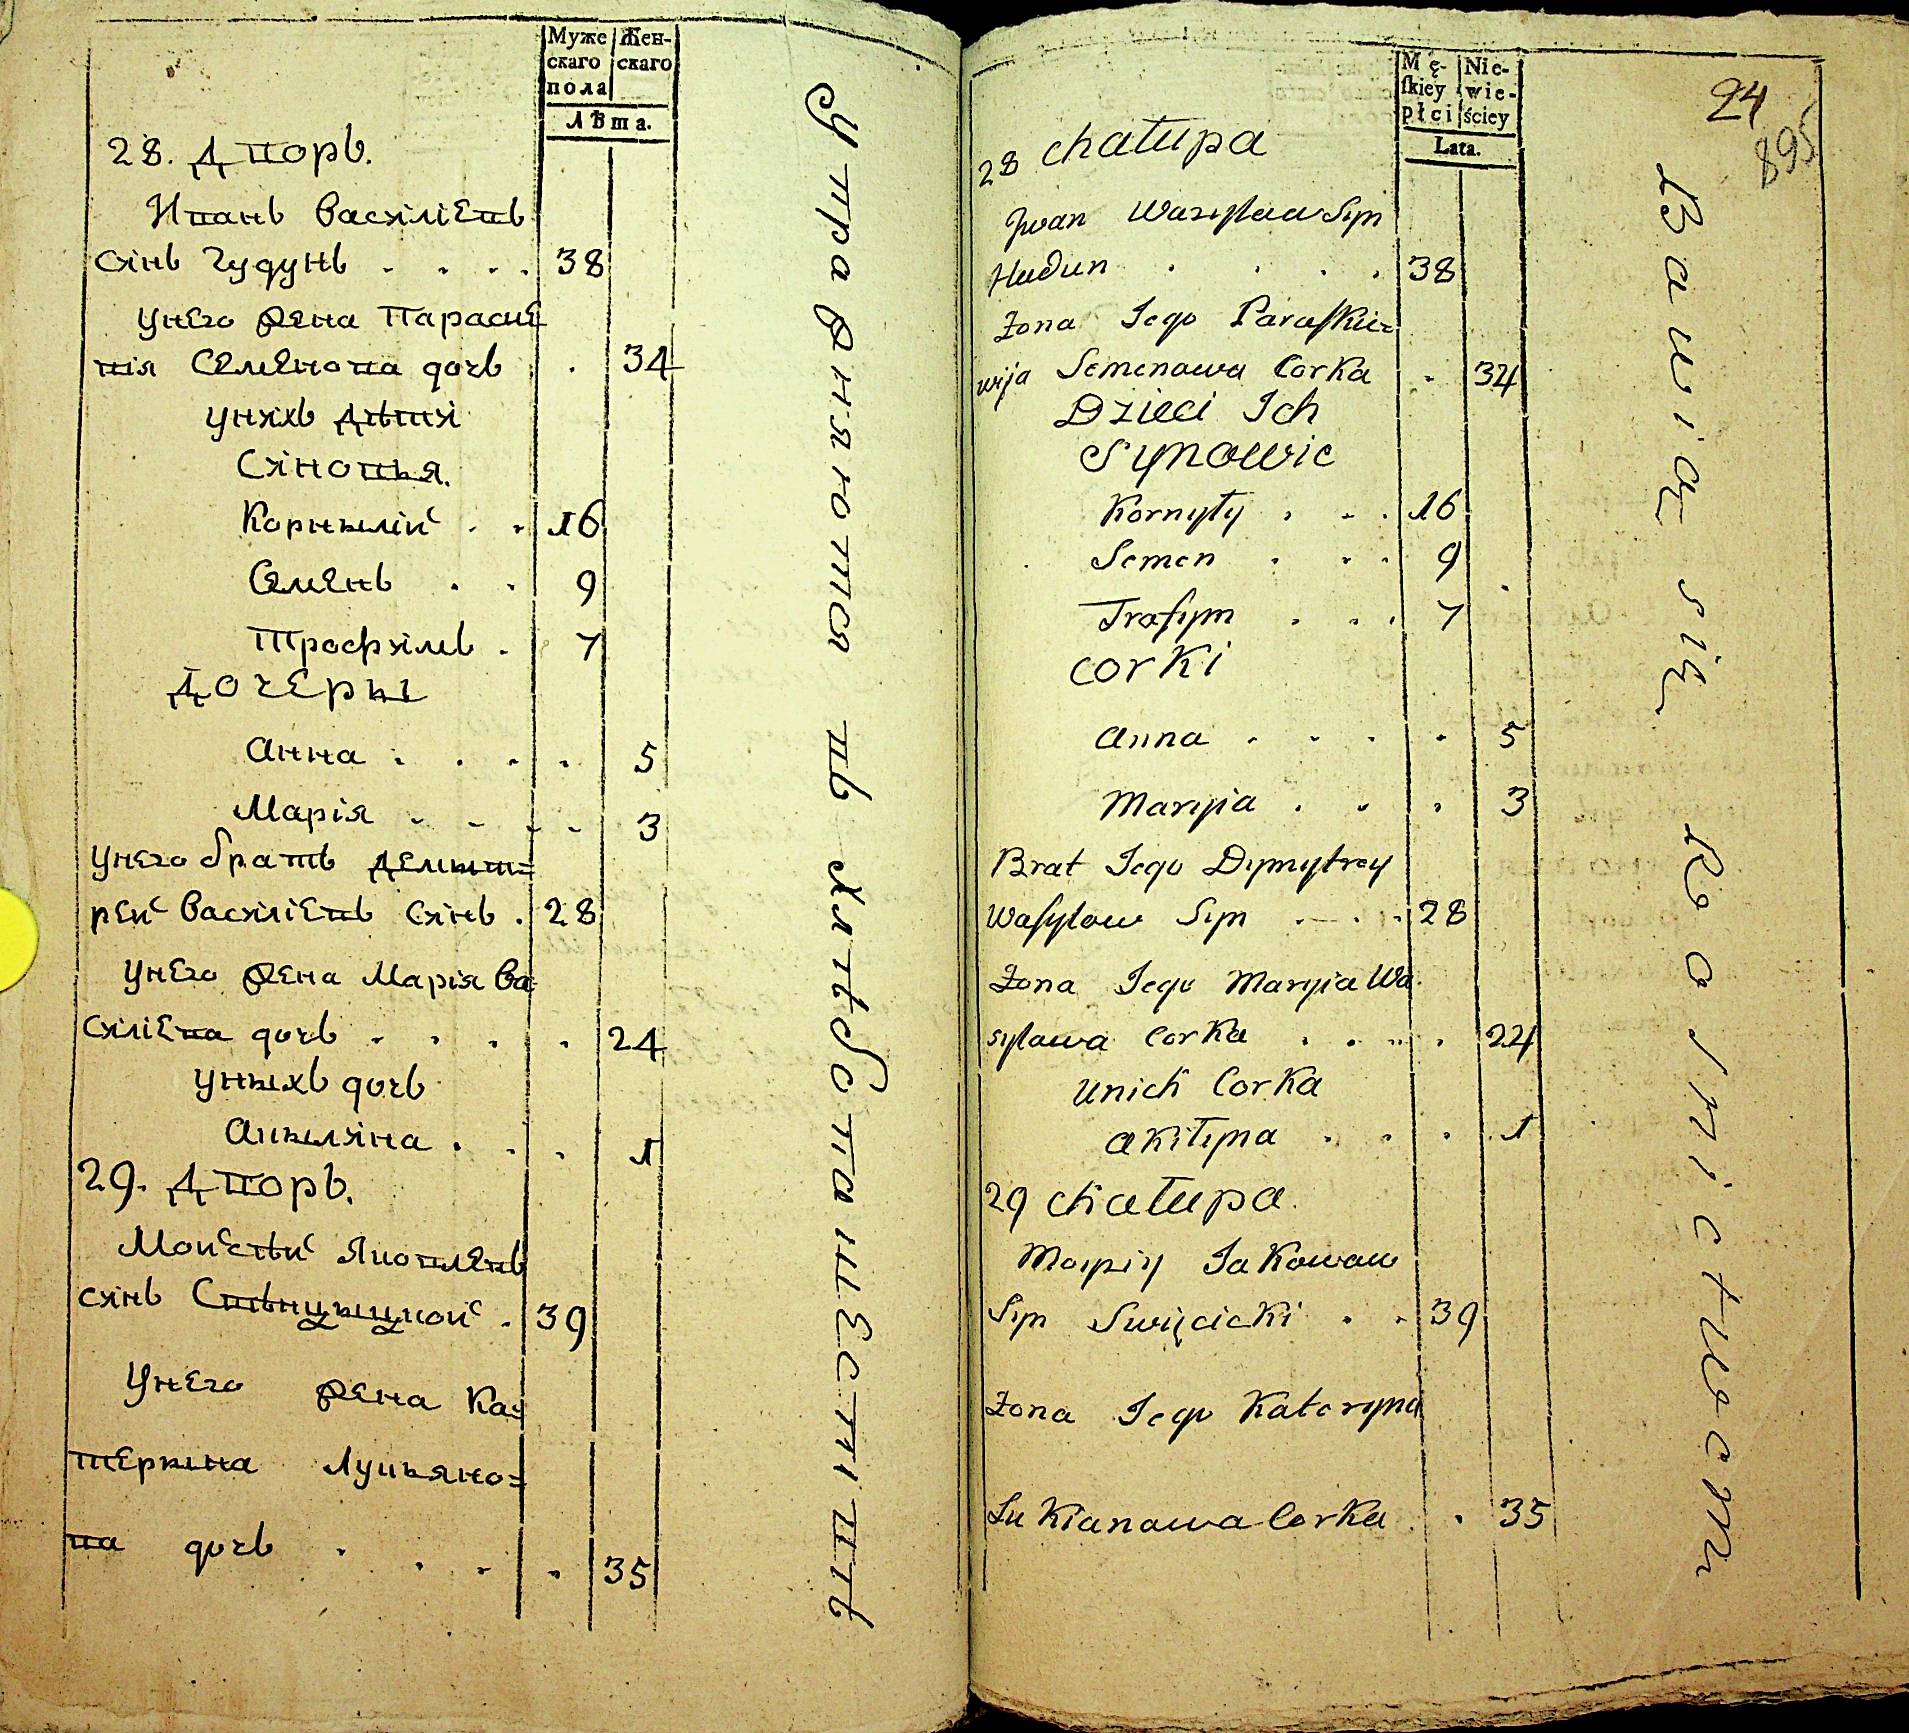 Муже Жен-
скаго скаго
пола
Лѣта.
28. Дворъ.
Иванъ Василіевъ
синъ Гудунъ . . . . 38
унего жена Параске
вія Семенова дочь . 34
унихъ дѣти
Синовья.
Корнылій . . 16
Семенъ . . 9
Трофимъ . 7
Дочеры
Анна . . . . 5
Марія . . . . 3
унего братъ Демыт=
рей Василіевъ синъ . 28
унего жена Марія Ва
силіева дочь . . . . 24
уныхъ дочь
Акылина . . . 1
29. Дворъ.
Мойсѣй Яковлевъ
синъ Свѣнцыцкой . 39
унего жена Ка=
терына Лукьяно=
ва дочь . . . . . 35
упражняются въ хлѣбопашествіи
Mę- Nie-
ſkiey wie-
płci ściey
Lata.
24
895
28 chałupa
Jwan Wasylaw Syn
Hudun . . . . 38
Żona Jego Paraſkie=
wija Semenowa Corka . 34
Dzieci Ich
Synowie
Kornyły . . . 16
Semen . . . 9
Trafym . . . 7
corki
Anna . . . . . 5
Maryia . . . 3
Brat Jego Dymytrey
Waſylow Syn . . . 28
Żona Jego Maryia Wa
sylawa Corka . . . . 24
unich Corka
Akiłyna . . . . 1
29 chałupa.
Moysiy Jakowaw
Syn Swięcicki . . 39
Żona Jego Kateryna
Lukianawa Corka . . 35
Bawią się Rolnictwem